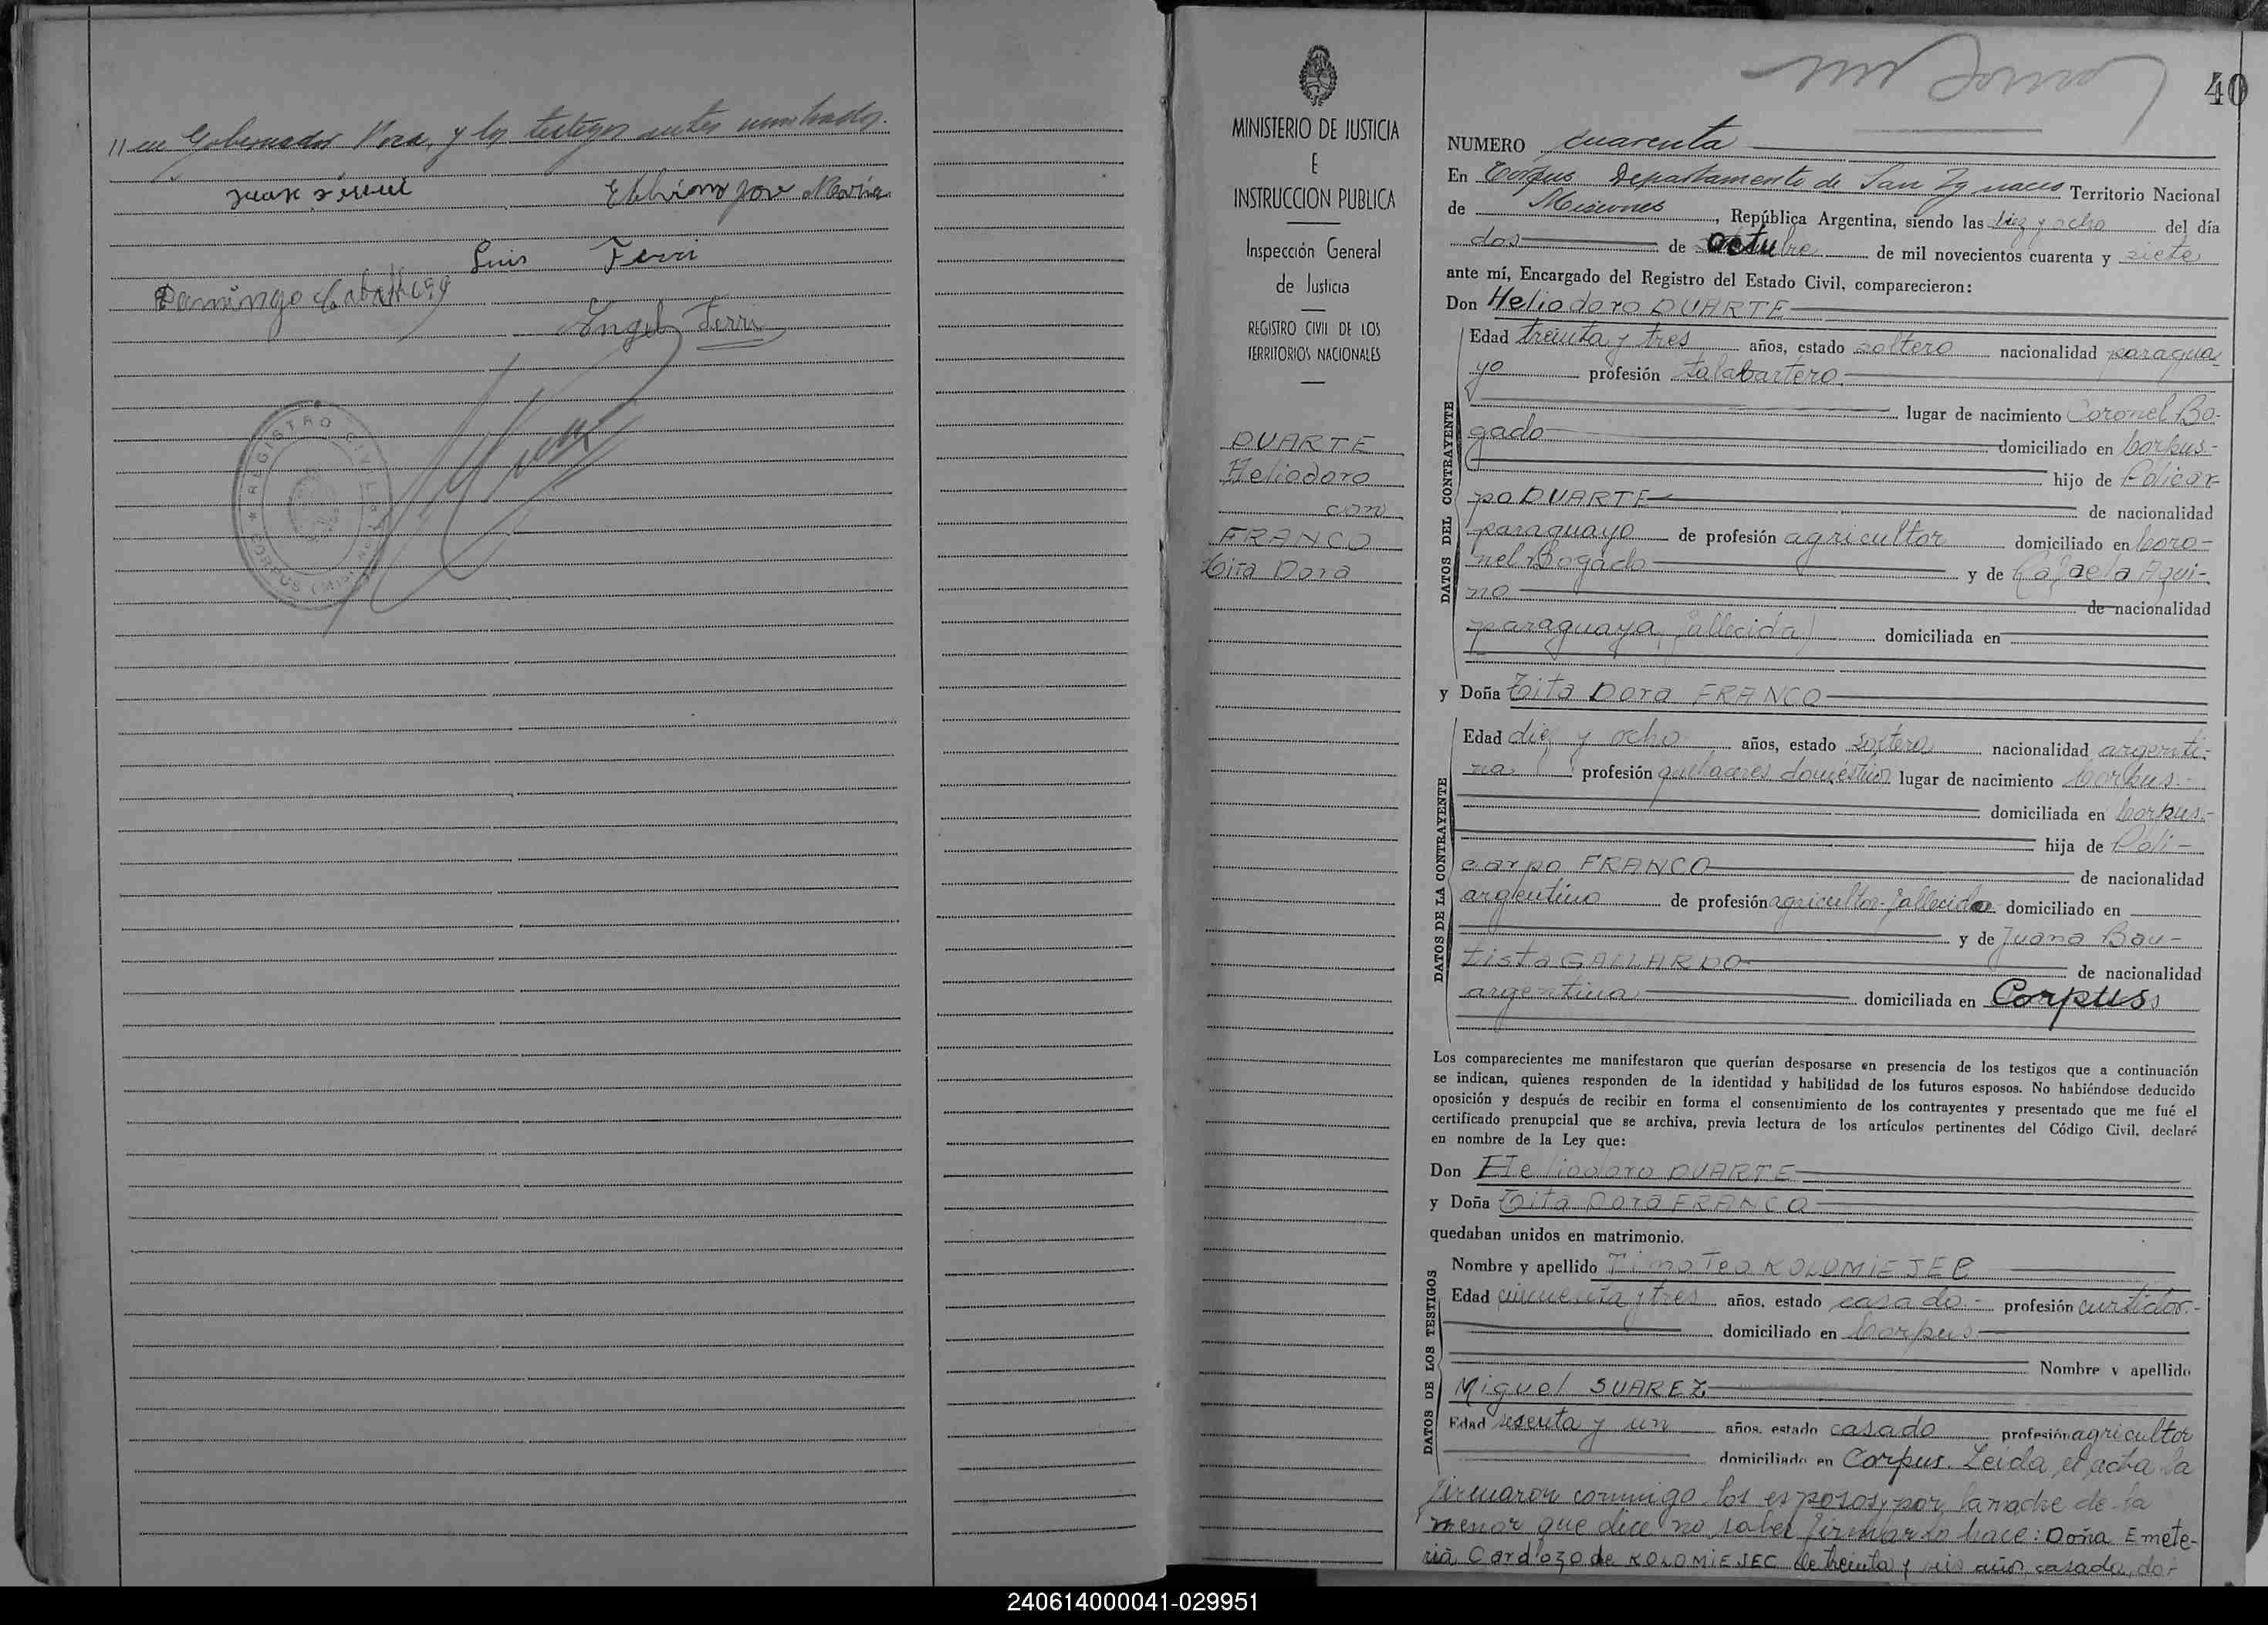 // en Gobernador Roca, y los testigos antes nombrados.
Luis Ferri
Domingo Caballero
Angel Ferri
REGISTRO CIVIL
CORPUS (MISIONES)
MINISTERIO DE JUSTICIA
E
INSTRUCCION PUBLICA
Inspección General
de Justicia
REGISTRO CIVIL DE LOS
TERRITORIOS NACIONALES
DUARTE
Heliodoro
con
FRANCO
Tita Dora
40
NUMERO cuarenta
En Corpus Departamento de San Ignacio Territorio Nacional
de Misiones, República Argentina, siendo las diez y ocho del día
dos de octubre de mil novecientos cuarenta y siete
ante mí, Encargado del Registro del Estado Civil, comparecieron:
Don Heliodoro DUARTE
DATOS DEL CONTRAYENTE
Edad treinta y tres años, estado soltero nacionalidad paragua-
yo profesión talabartero
lugar de nacimiento Coronel Bo-
gado domiciliado en Corpus.-
hijo de Policar-
po DUARTE de nacionalidad
paraguayo de profesión agricultor domiciliado en Coro-
nel Bogado y de Rafaela Aqui-
no de nacionalidad
paraguaya, (fallecida) domiciliada en
y Doña Tita Dora FRANCO
DATOS DE LA CONTRAYENTE
Edad diez y ocho años, estado soltera nacionalidad argenti-
na profesión quehaceres domésticos lugar de nacimiento Corpus.-
domiciliada en Corpus.-
hija de Poli-
carpo FRANCO de nacionalidad
argentino de profesión agricultor-fallecido domiciliado en
y de Juana Bau-
tista GALLARDO de nacionalidad
argentina domiciliada en Corpus
Los comparecientes me manifestaron que querían desposarse en presencia de los testigos que a continuación
se indican, quienes responden de la identidad y habilidad de los futuros esposos. No habiéndose deducido
oposición y después de recibir en forma el consentimiento de los contrayentes y presentado que me fué el
certificado prenupcial que se archiva, previa lectura de los artículos pertinentes del Código Civil, declaré
en nombre de la Ley que:
Don Heliodoro DUARTE
y Doña Tita Dora FRANCO
quedaban unidos en matrimonio.
DATOS DE LOS TESTIGOS
Nombre y apellido Timoteo KOLOMIEJEC
Edad cincuenta y tres años, estado casado.- profesión curtidor.-
domiciliado en Corpus
Nombre y apellido
Miguel SUAREZ
Edad sesenta y un años, estado casado profesión agricultor
domiciliado en Corpus. Leida el acta la
firmaron conmigo los esposos, por la madre de la
menor que dice no saber firmar lo hace: Doña Emete-
ria Cardozo de KOLOMIEJEC de treinta y seis años casada, do-
240614000041-029951